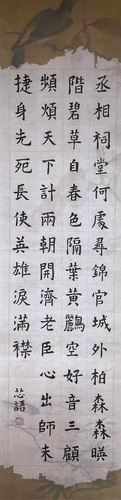 丞相祠堂何處尋錦官城外柏森森暎
階碧草自春色隔葉黃鸝空好音三顧
頻煩天下計兩朝開濟老臣心出師未
捷身先死長使英雄淚滿襟
芯語